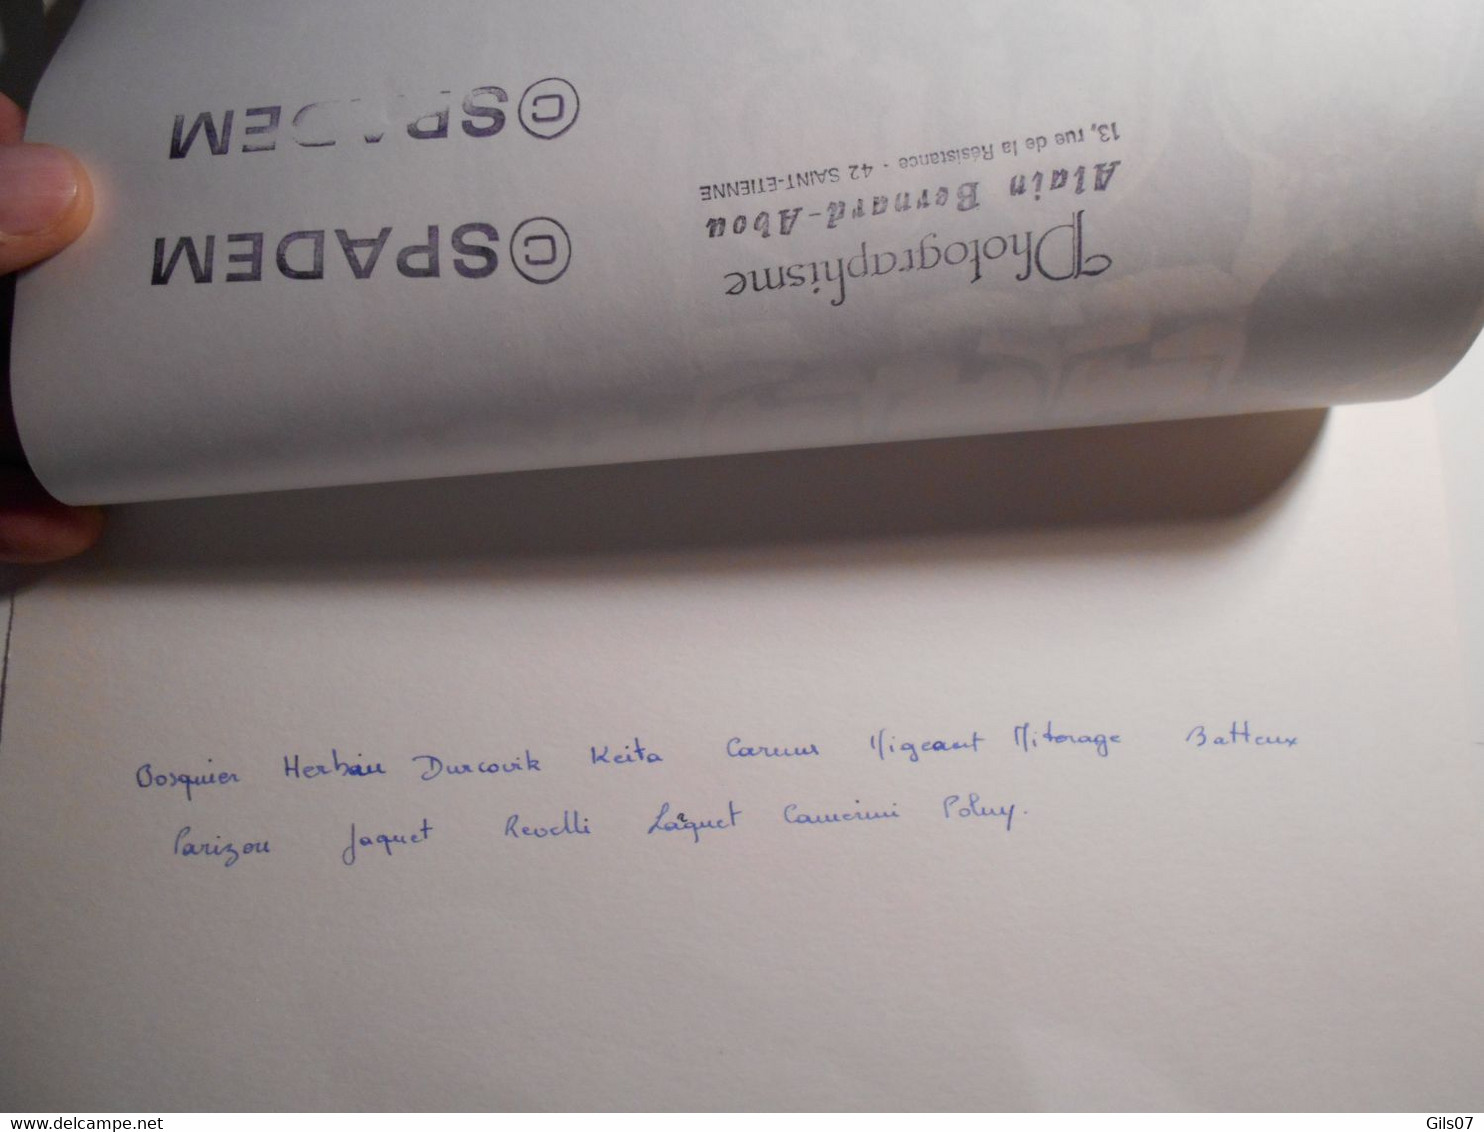 ©SPADEM
©SPADEM
Photographisme
Alain Bernard-Abou
13, rue de la Résistance - 42 SAINT-ETIENNE
Bosquier Herbin Durcovik Keita Carnus Migeant Mitorage Batteux
Parizon Jaquet Revelli Larquet Camerini Polny.
www.delcampe.net
Gils07